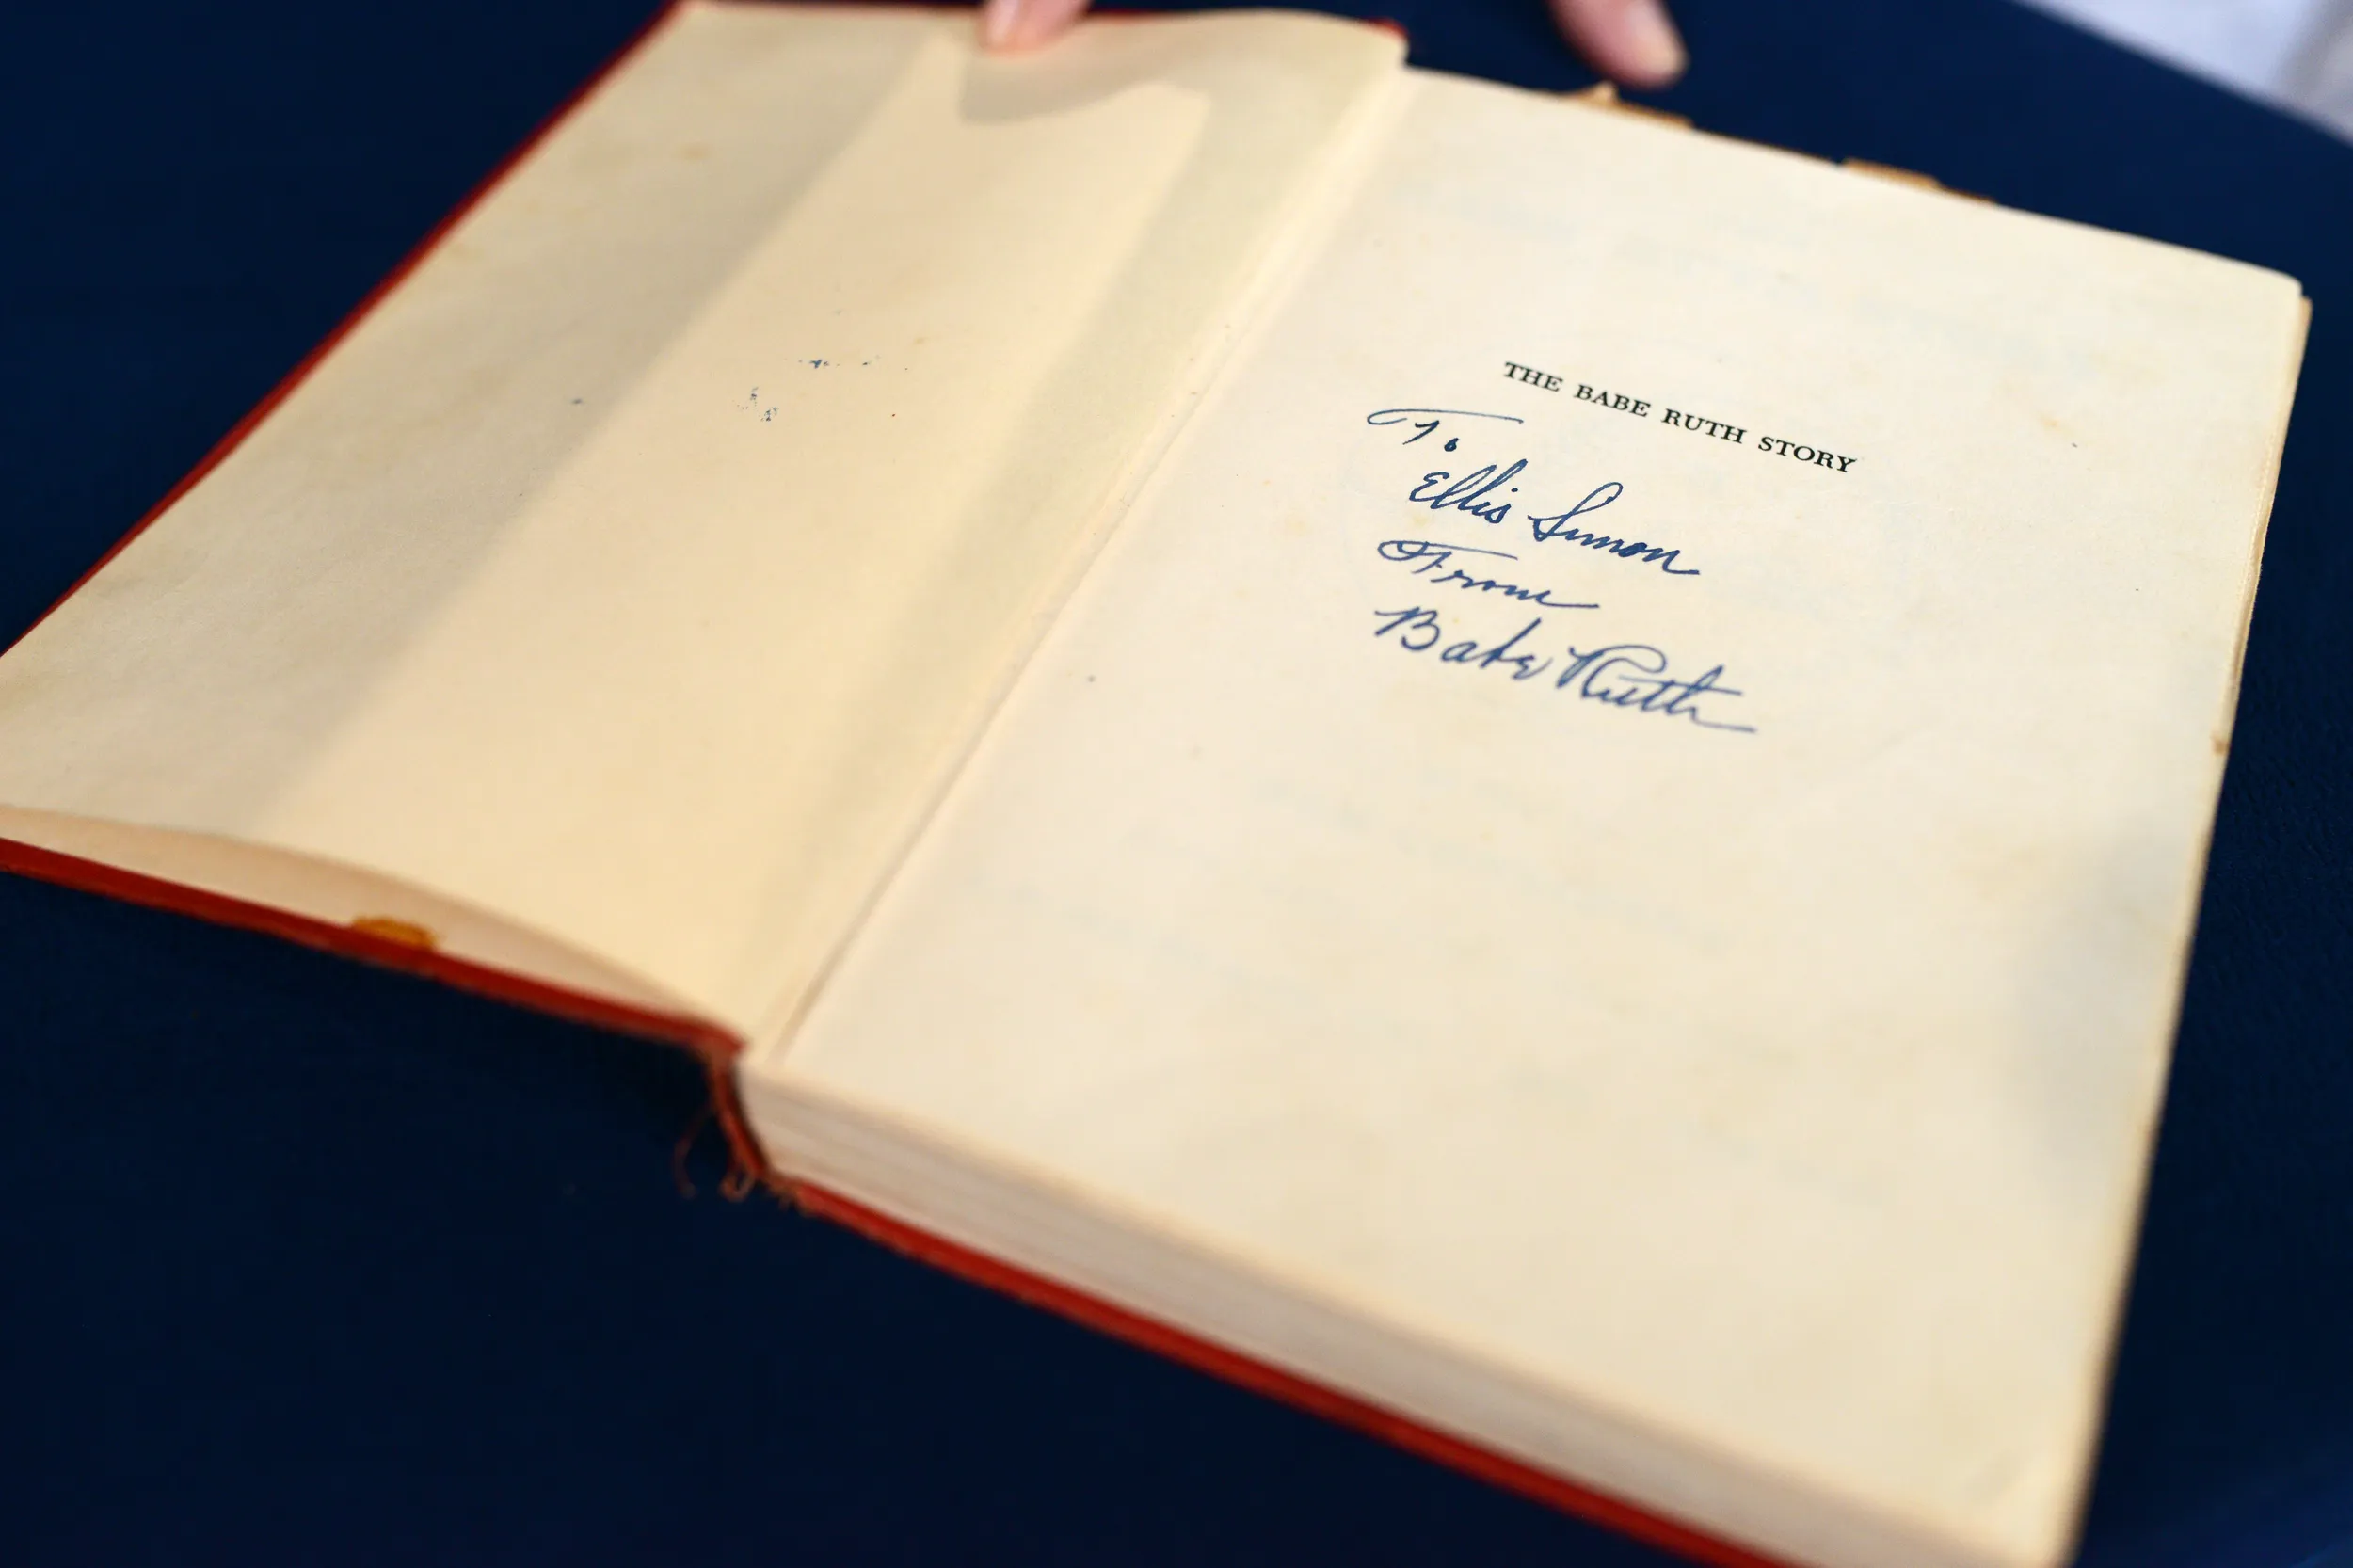 THE BABE RUTH STORY
To
Ellis Simon
From
Babe Ruth